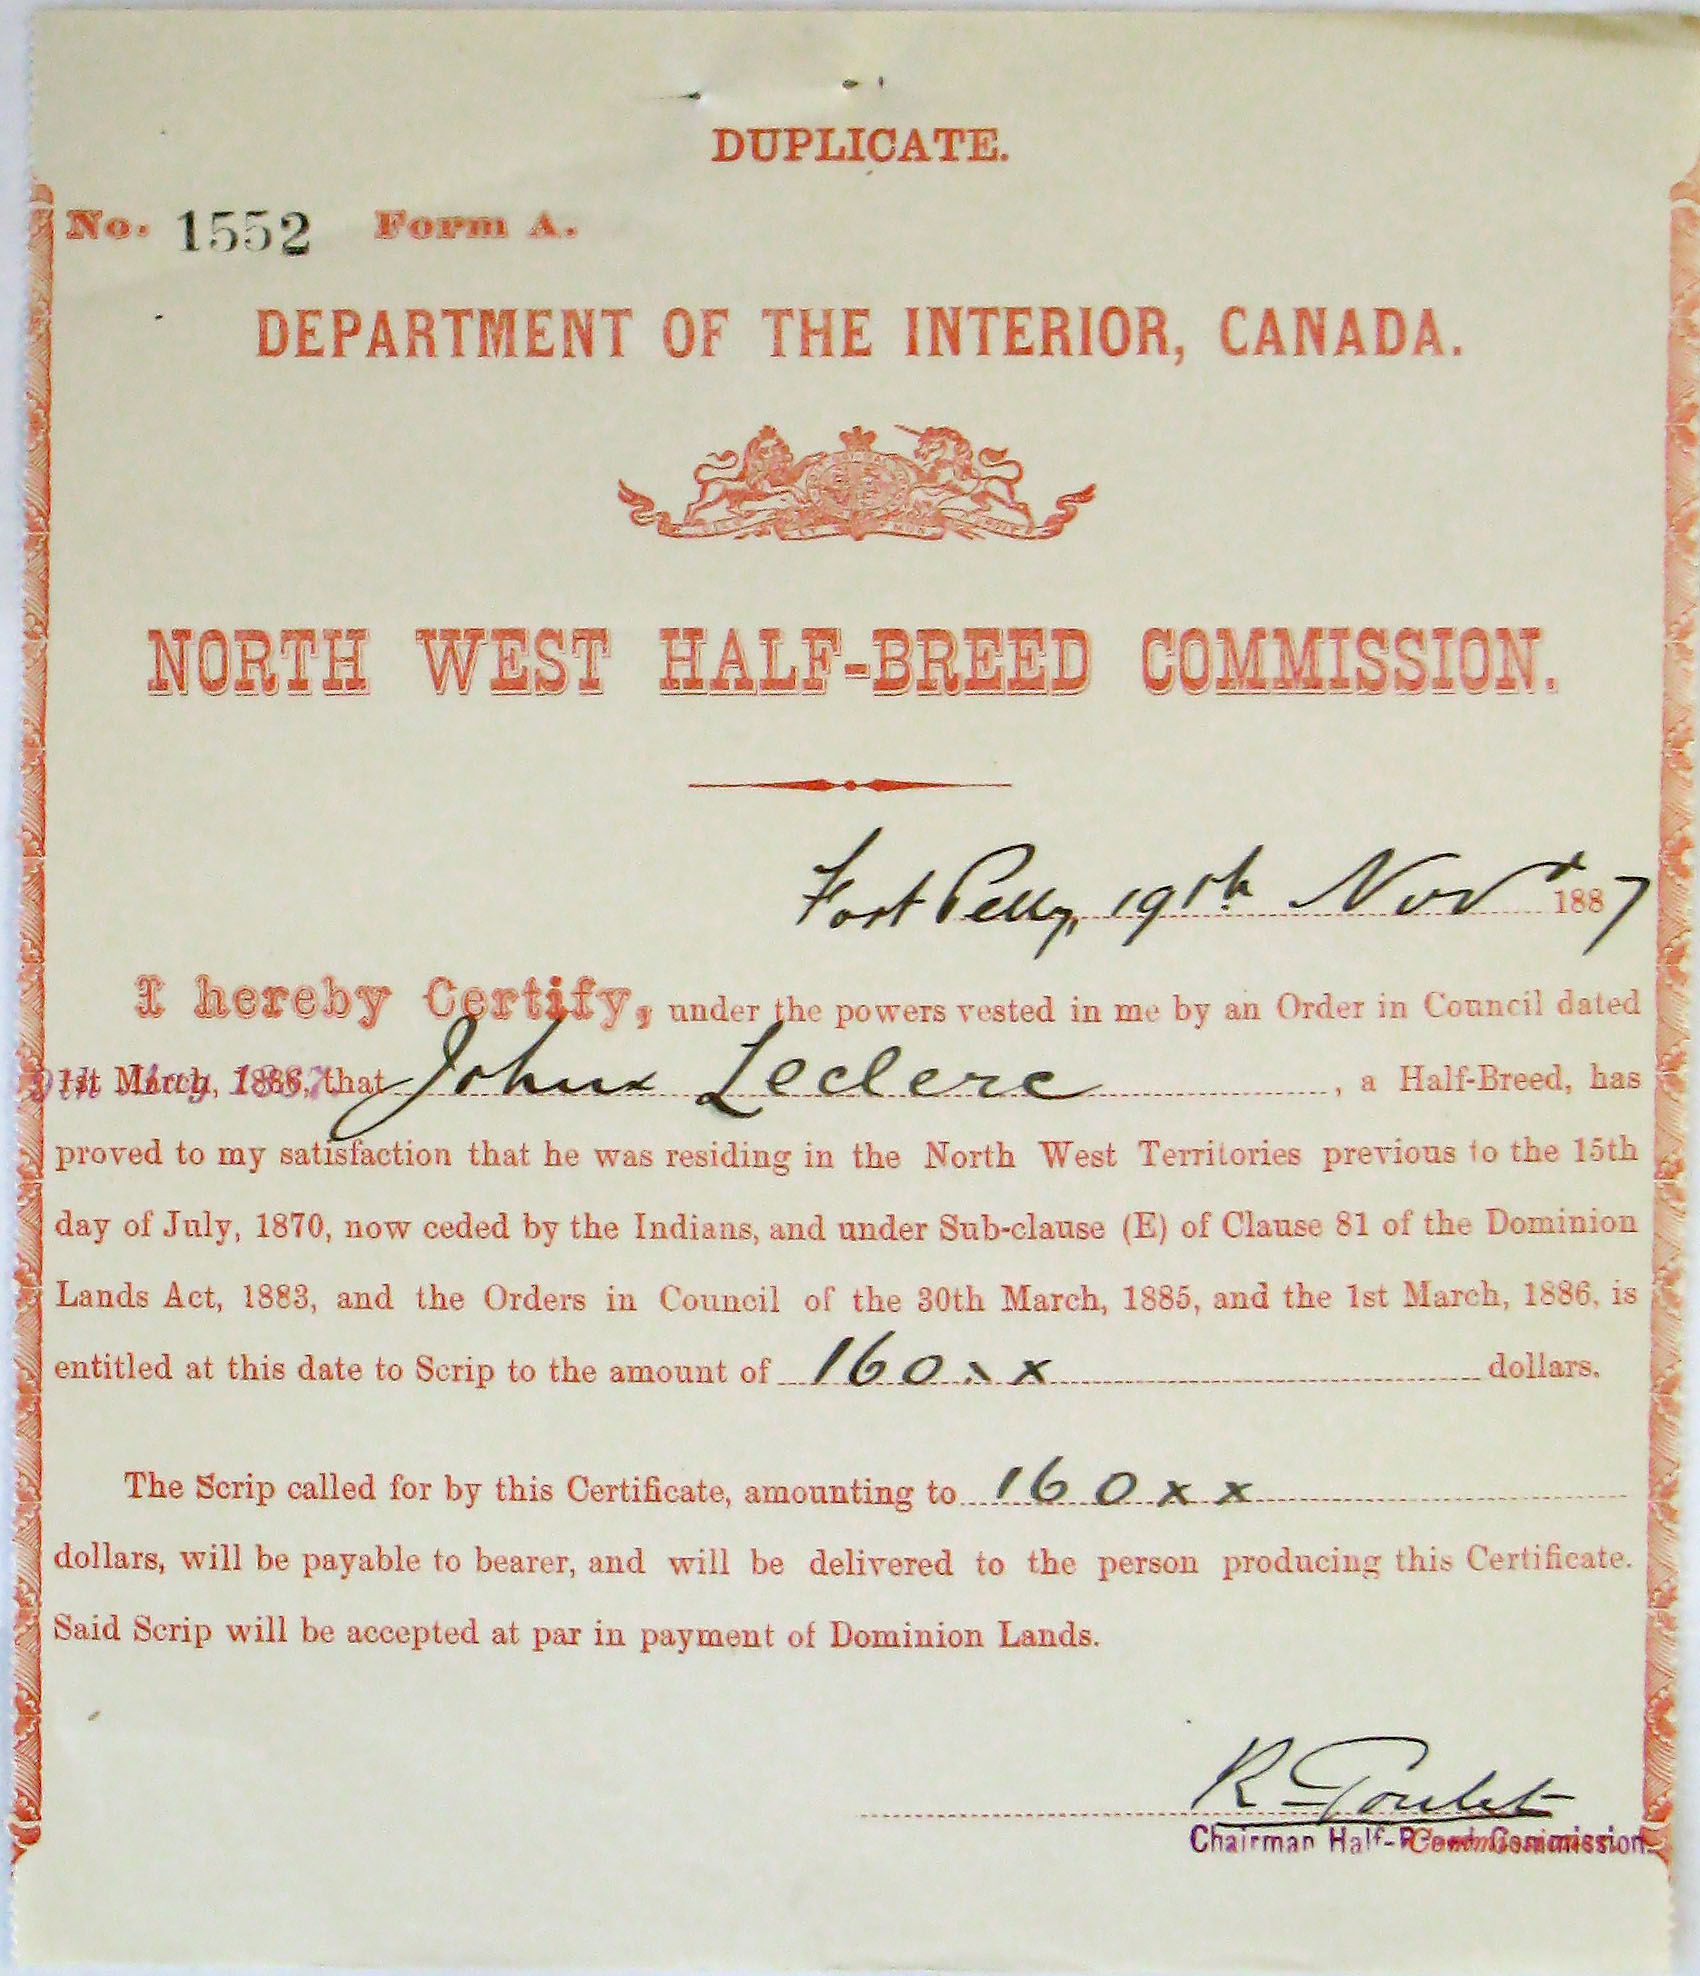 DUPLICATE.
No. 1552 Form A.
DEPARTMENT OF THE INTERIOR, CANADA.
NORTH WEST HALF-BREED COMMISSION.
Fort Pelly, 19th Nov 1887
I hereby Certify, under the powers vested in me by an Order in Council dated
1st March, 1886, that John Leclerc, a Half-Breed, has
proved to my satisfaction that he was residing in the North West Territories previous to the 15th
day of July, 1870, now ceded by the Indians, and under Sub-clause (E) of Clause 81 of the Dominion
Lands Act, 1883, and the Orders in Council of the 30th March, 1885, and the 1st March, 1886, is
entitled at this date to Scrip to the amount of 160xx dollars.
The Scrip called for by this Certificate, amounting to 160xx
dollars, will be payable to bearer, and will be delivered to the person producing this Certificate.
Said Scrip will be accepted at par in payment of Dominion Lands.
R Goulet
Chairman Half-Breed Commission.